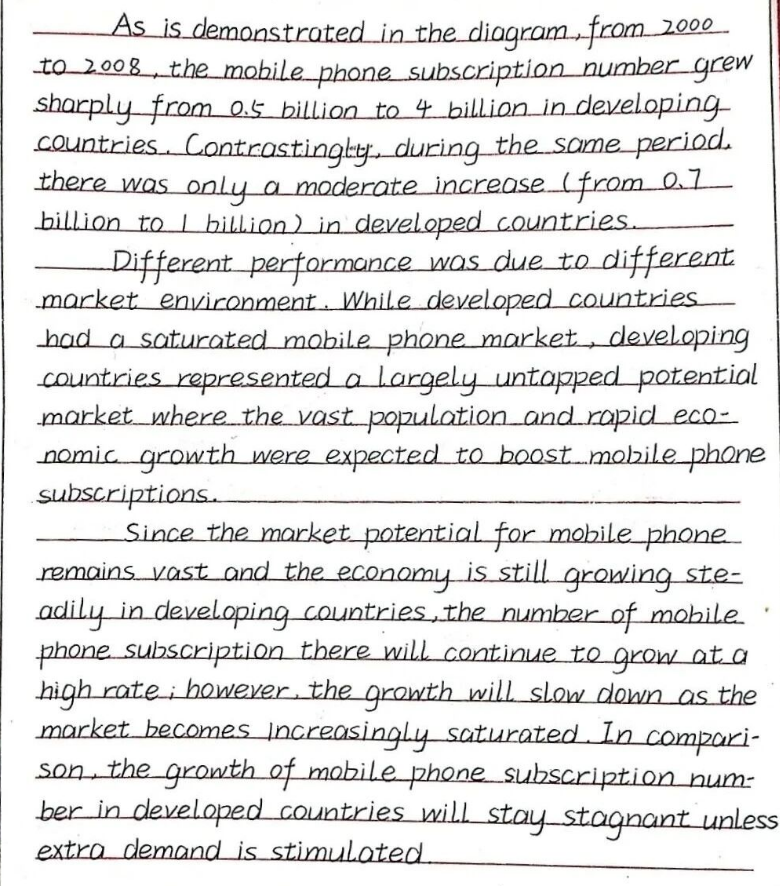 As is demonstrated in the diagram, from 2000
to 2008, the mobile phone subscription number grew
sharply from 0.5 billion to 4 billion in developing
countries. Contrastingly, during the same period,
there was only a moderate increase (from 0.7
billion to 1 billion) in developed countries.
Different performance was due to different
market environment. While developed countries
had a saturated mobile phone market, developing
countries represented a largely untapped potential
market where the vast population and rapid eco-
nomic growth were expected to boost mobile phone
subscriptions.
Since the market potential for mobile phone
remains vast and the economy is still growing ste-
adily in developing countries, the number of mobile
phone subscription there will continue to grow at a
high rate; however, the growth will slow down as the
market becomes increasingly saturated. In compari-
son, the growth of mobile phone subscription num-
ber in developed countries will stay stagnant unless
extra demand is stimulated.